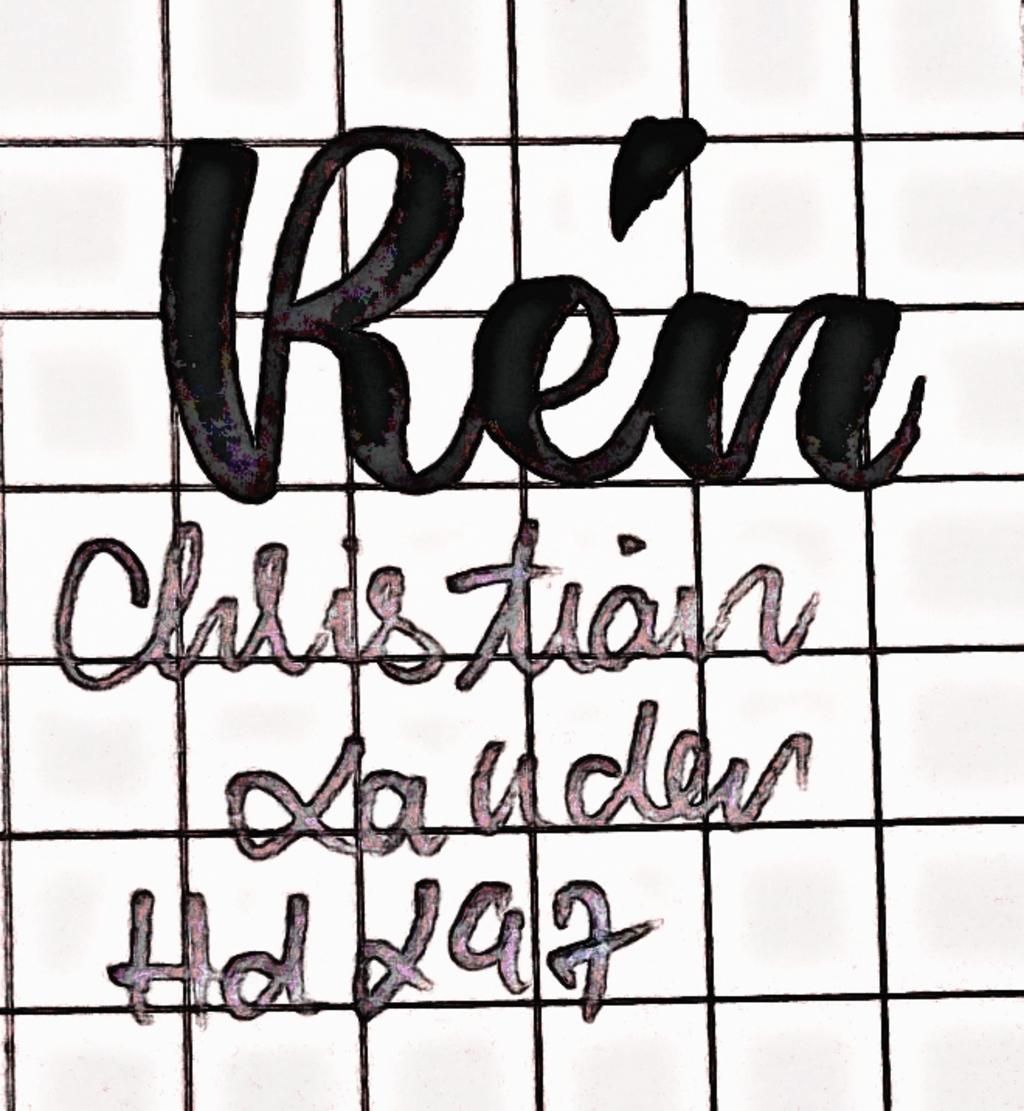 Rén
Christian
Lauder
Hd297